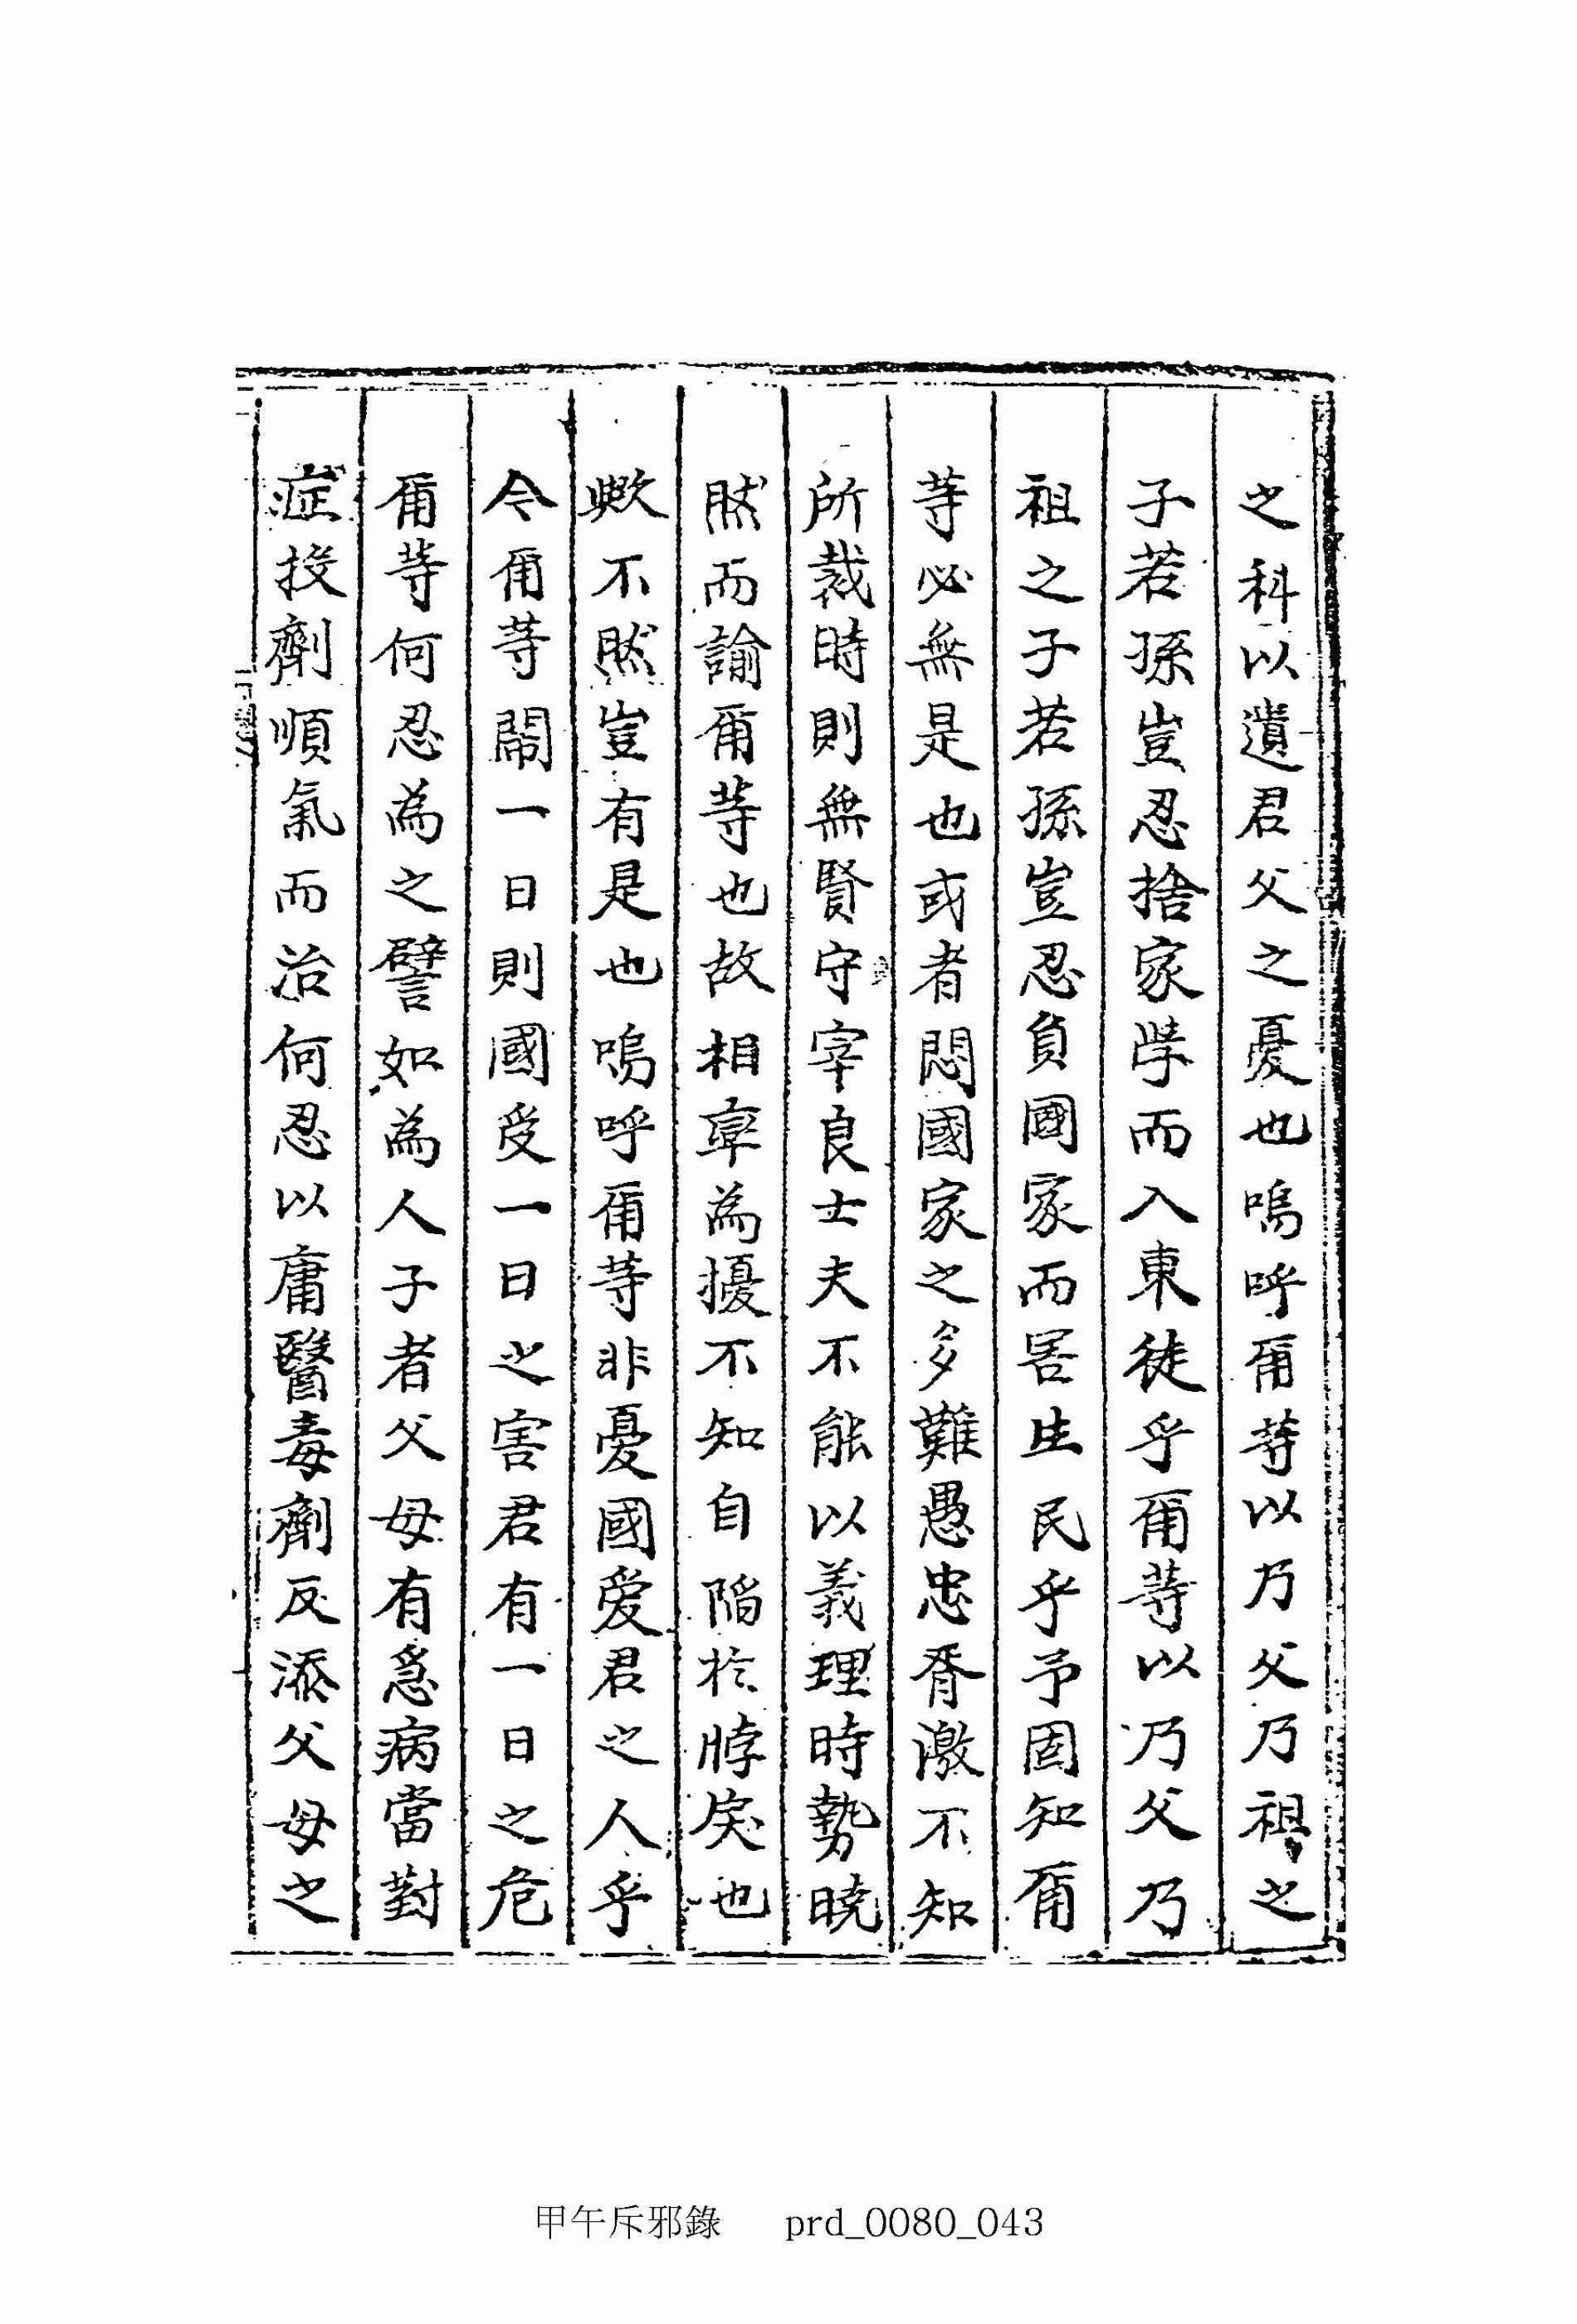 之科以遺君父之憂也嗚呼爾等以乃父乃祖之
子若孫豈忍捨家学而入東徒乎爾等以乃父乃
祖之子若孫豈忍負國家而害生民乎予固知爾
等必無是也或者悶國家之多難愚忠胥激不知
所裁時則無賢守宰良士夫不能以義理時勢曉
然而諭爾等也故相率為擾不知自陷於悖戾也
歟不然豈有是也嗚呼爾等非憂國爱君之人乎
今爾等鬧一日則國受一日之害君有一日之危
爾等何忍為之譬如為人子者父母有急病當對
症投劑順氣而治何忍以庸醫毒劑反添父母之
甲午斥邪錄 prd_0080_043